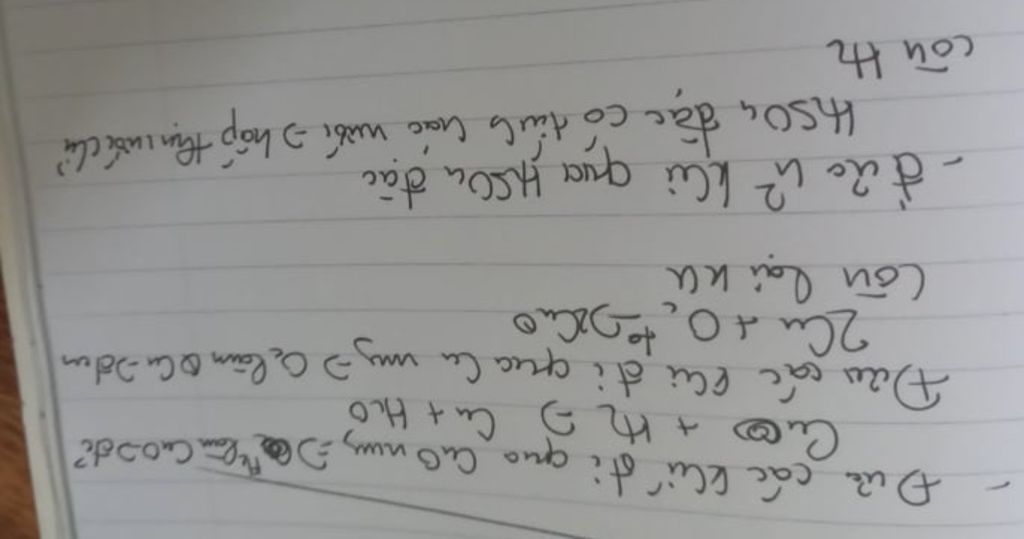 - Đưa các khí đi qua CuO nung => H2 làm CuO => đỏ
CuO + H2 => Cu + H2O
Đưa các khí đi qua Cu nung => O2 làm Cu => đen
2Cu + O2 t° => 2CuO
Còn lại
- đưa 2 khí qua H2SO4 đặc
H2SO4 đặc có tính háo nước => hấp thụ nước
còn H2